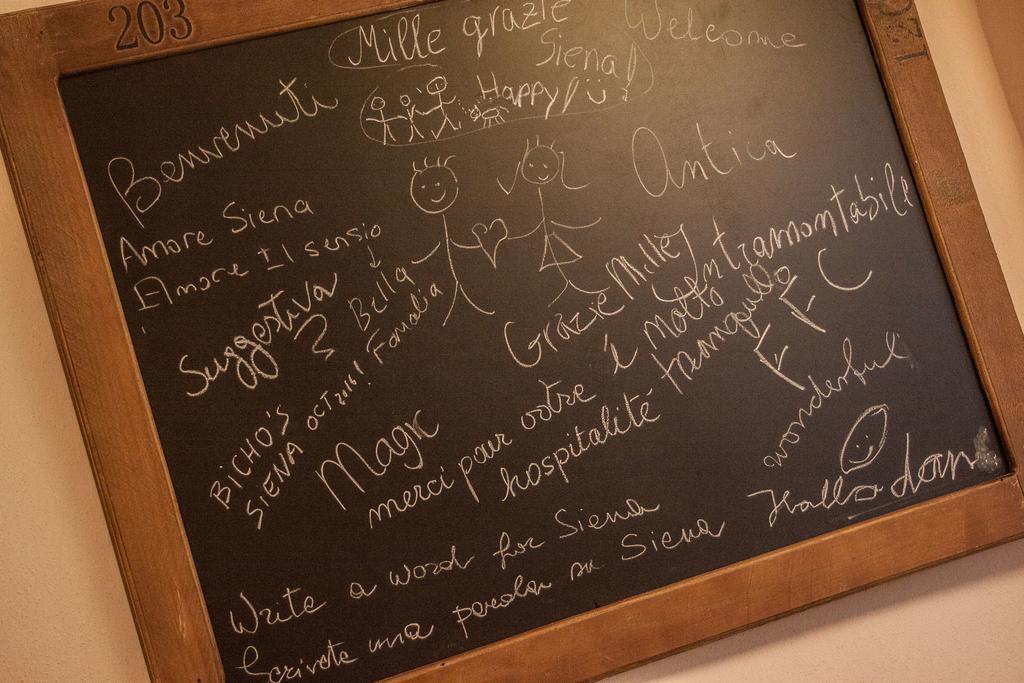 203
120
Mille grazie
Siena!
Welcome
Happy!
Benvenuti
Antica
Amore Siena
Amore Il sensio
Suggestiva
Bella
BICHO'S
SIENA OCT 2011!
Grazie Mille
é molto
tranquillo
Intramontabile
Magic
merci pour votre
hospitalité
wonderful
Hallo
Write a word for Siena
Scrivete una parola su Siena